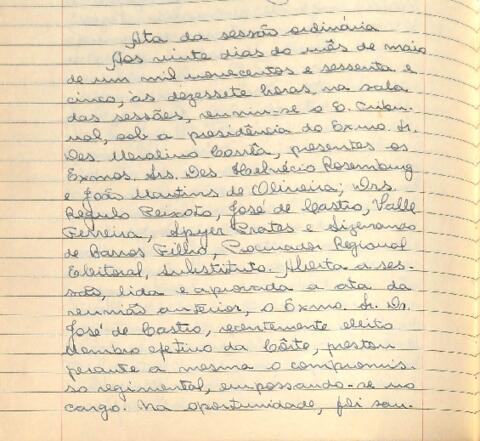 Ata da sessão ordinária
Aos vinte dias do mês de maio
de um mil novecentos e sessenta e
cinco, às dezessete horas, na sala
das sessões, reuniu-se o E. Tribu-
nal, sob a presidência do Exmo. Sr.
Des. Merolino Corrêa, presentes os
Exmos. Srs. Des. Helvécio Rosenburg
e João Martins de Oliveira; Drs.
Régulo Peixoto, José de Castro, Valle
Ferreira, Spyer Prates e Sizenando
de Barros Filho, Procurador Regional
Eleitoral, Substituto. Aberta a ses-
são, lida e aprovada a ata da
reunião anterior, o Exmo. Sr. Dr.
José de Castro, recentemente eleito
Membro efetivo da Côrte, prestou
perante a mesma o compromis-
so regimental, empossando-se no
cargo. Na oportunidade, foi sau-